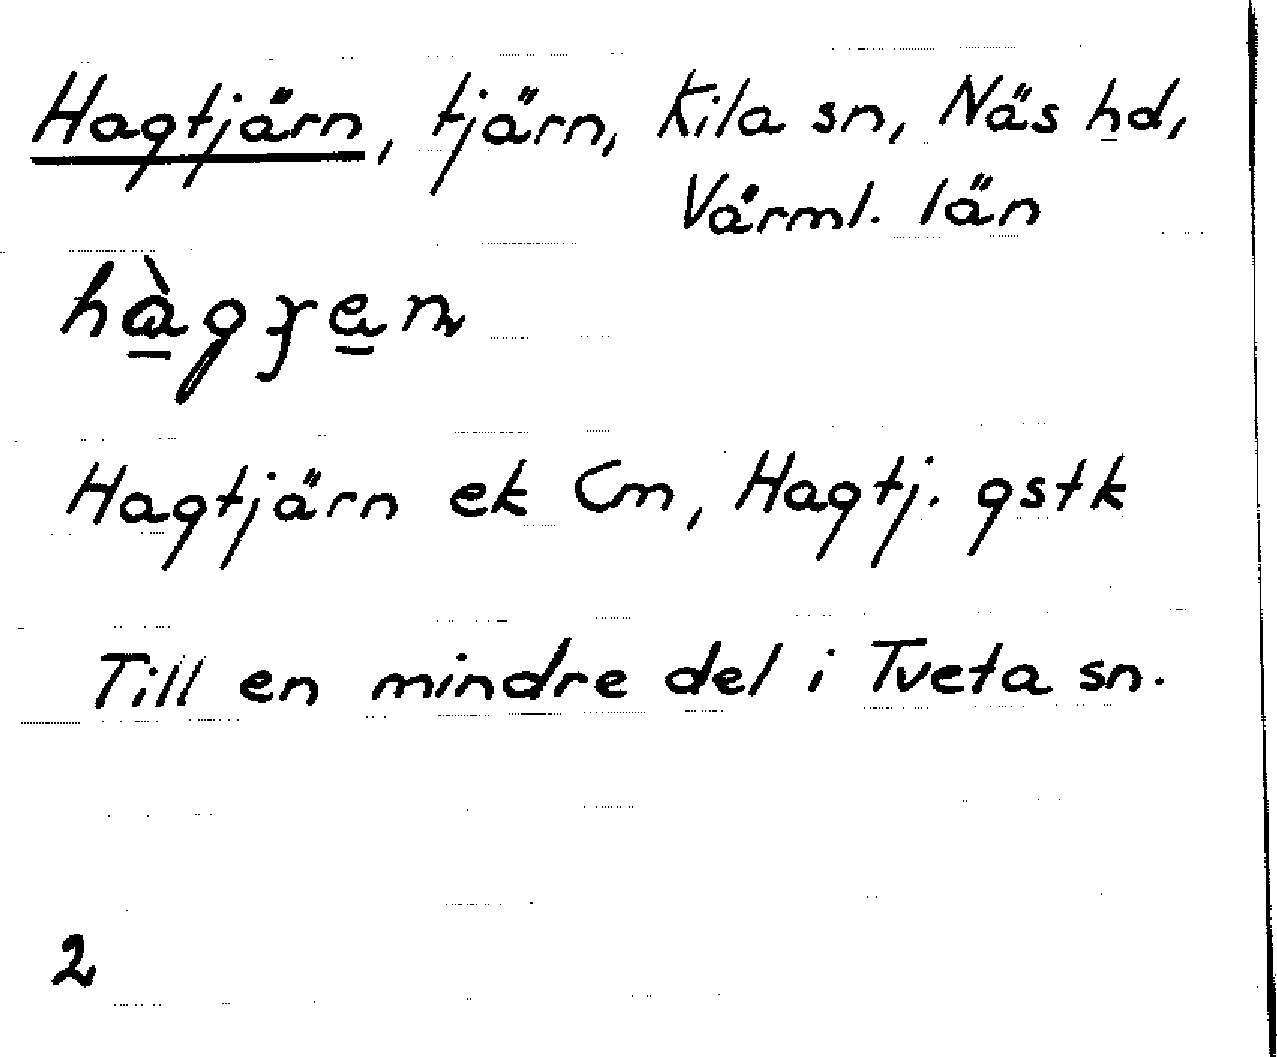 Hagtjärn, tjärn, Kila sn, Näs hd,
Värml. län
Hagtjärn ek Cm, Hagtj. gstk
Till en mindre del i Tveta sn.
2